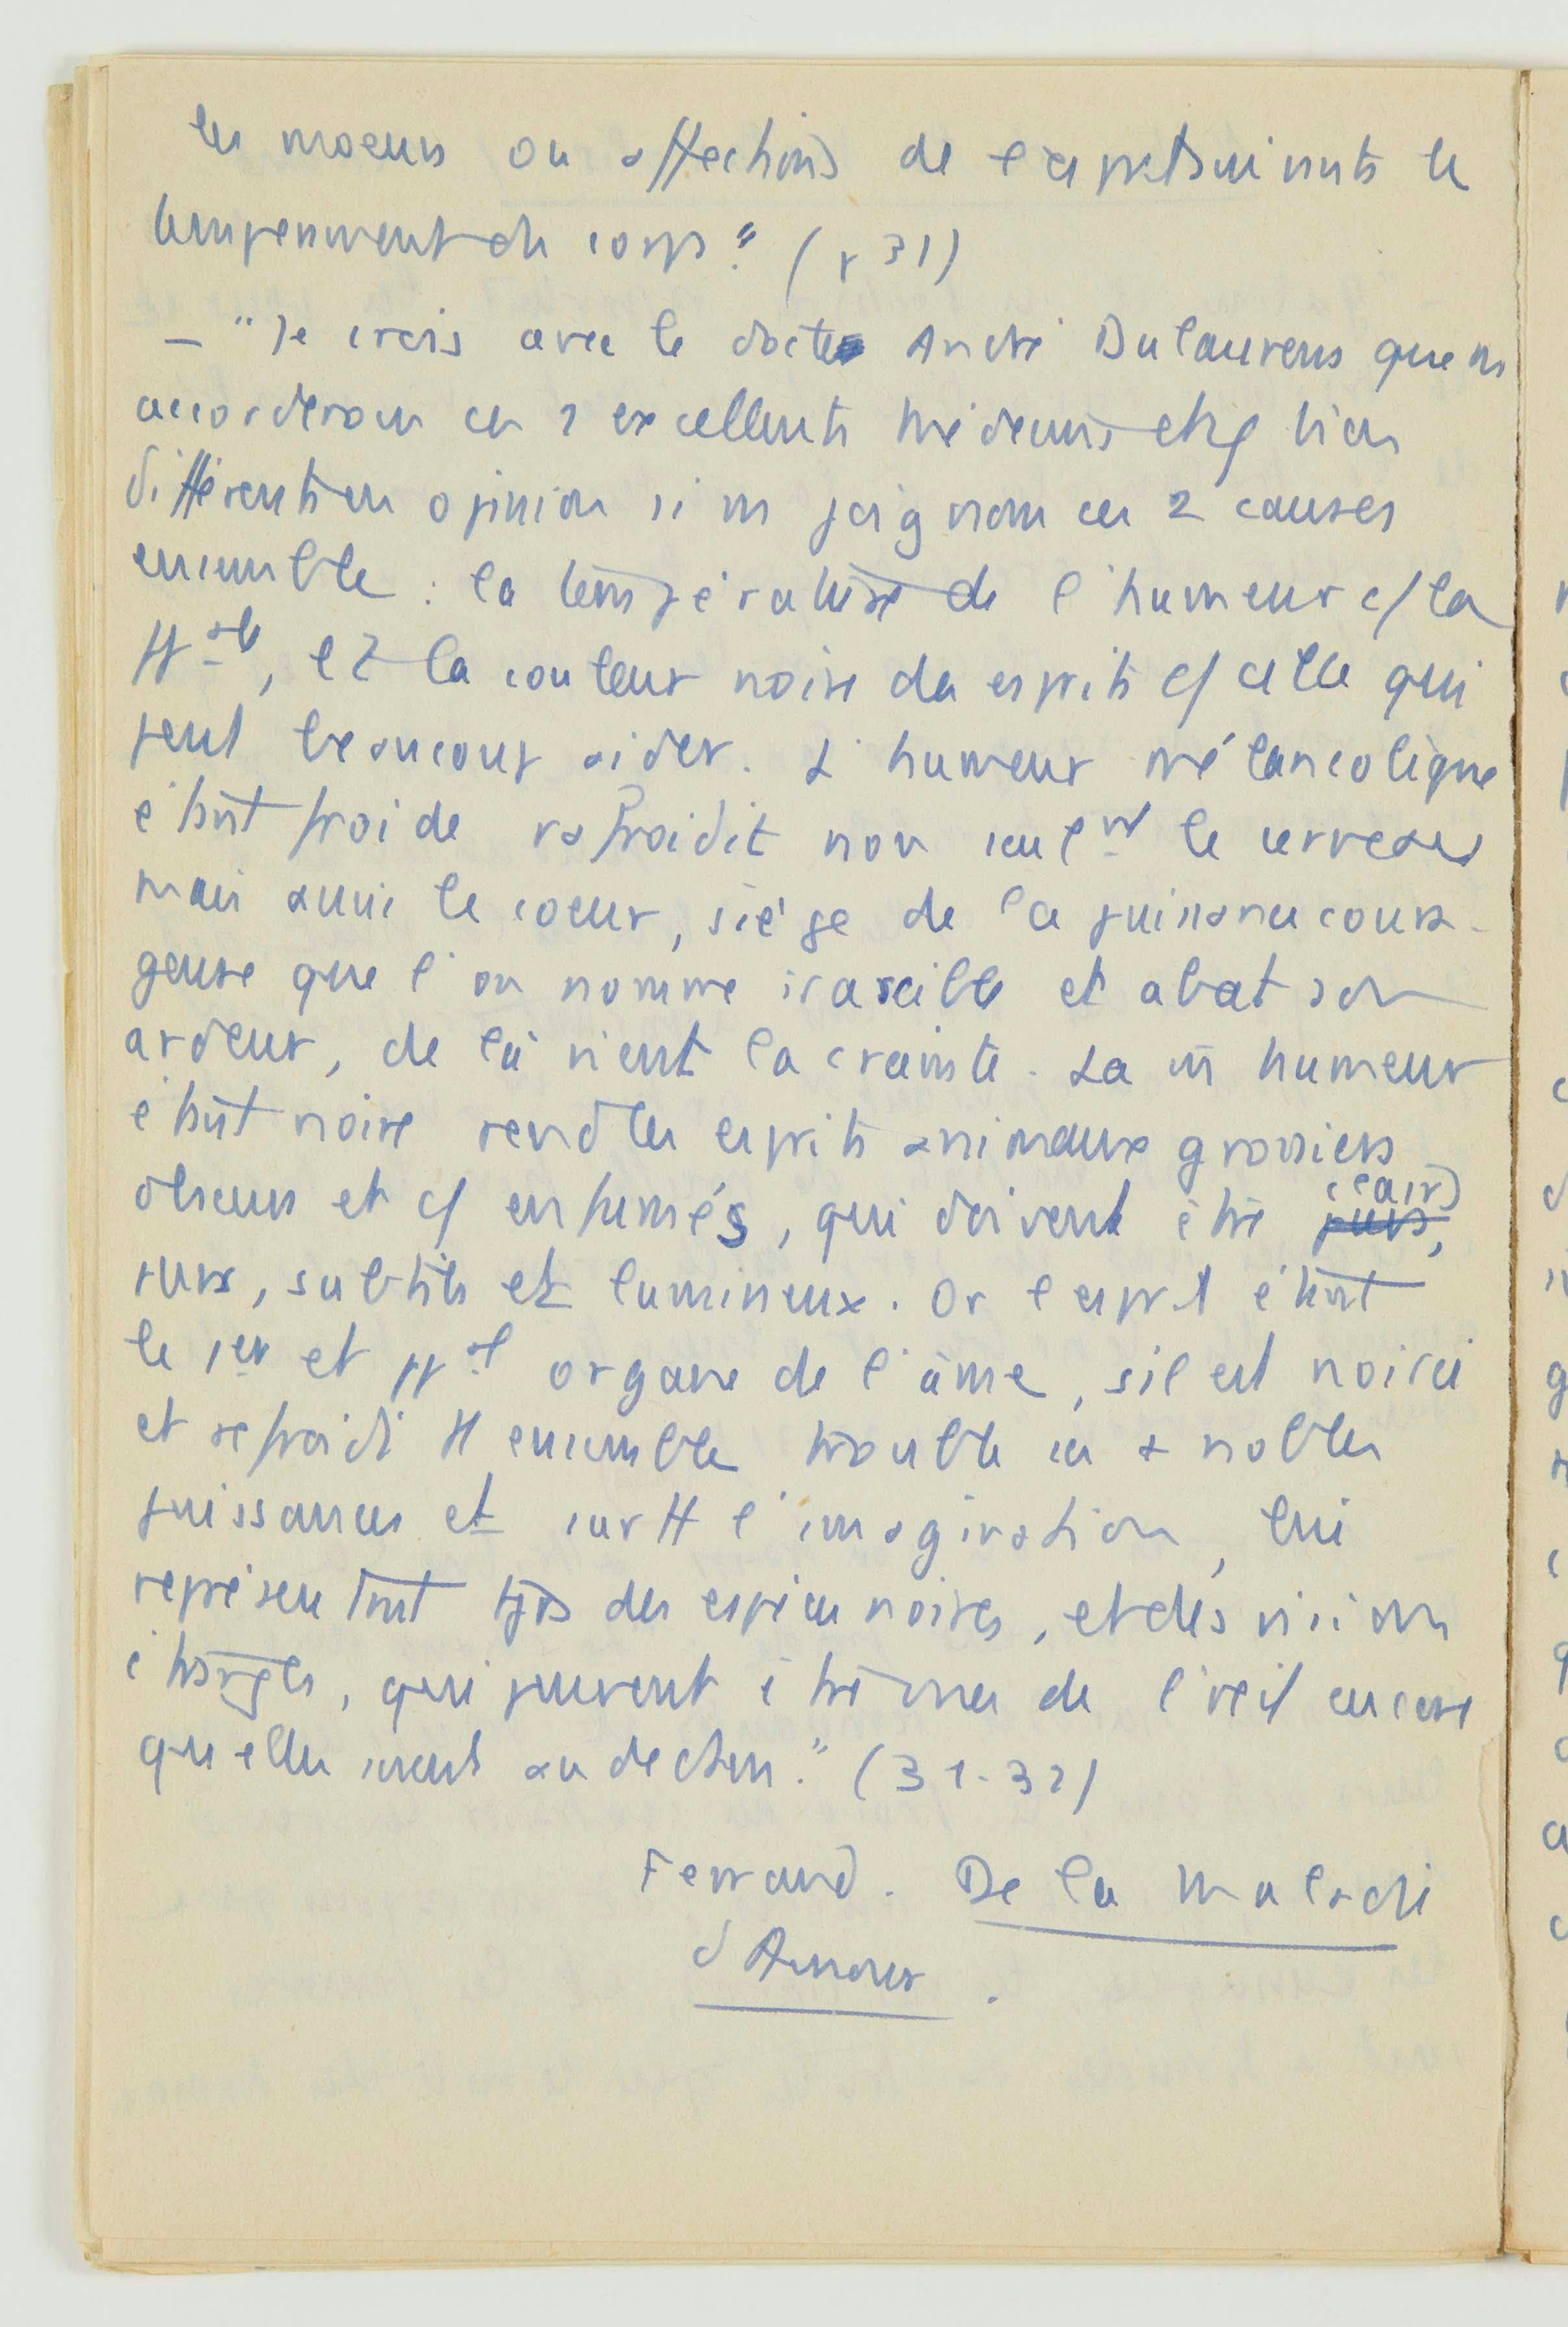 les moeurs ou affections de l'esprit suivants le
tempérament du corps." (p 31)
— "Je crois avec le docte André Dulaurens que ns
accorderons ces 2 excellents médecins et φ bien
différents en opinion si ns joignons ces 2 causes
ensemble : la température de l'humeur c/ la
ppale, et la couleur noire des esprits c/ celle qui
peut beaucoup aider. L'humeur mélancolique
étant froide refroidit non seulmt le cerveau
mais aussi le coeur, siège de la puissance coura-
geuse que l'on nomme irascible et abat son
ardeur, de là vient la crainte. La m̄ humeur
étant noire rend les esprits animaux grossiers
obscurs et c/ enfumés, qui doivent être purs, clairs
purs, subtils et lumineux. Or l'esprit étant
le 1er et ppal organe de l'âme, s'il est noirci
et refroidi tt ensemble trouble ses + nobles
puissances et surtt l'imagination, lui
représentant tjrs des espèces noires, et des visions
étranges, qui peuvent être vues de l'oeil encore
qu'elles soient au dedans." (31-32)
Ferrand. De la Maladie
d'Amour.